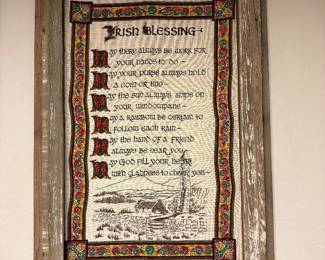 Irish Blessing
May there always be work for
your hands to do ~
May your purse always hold
a coin or two ~
May the sun always shine on
your windowpane ~
May a rainbow be certain to
follow each rain ~
May the hand of a friend
always be near you ~
May God fill your heart
with gladness to cheer you ~